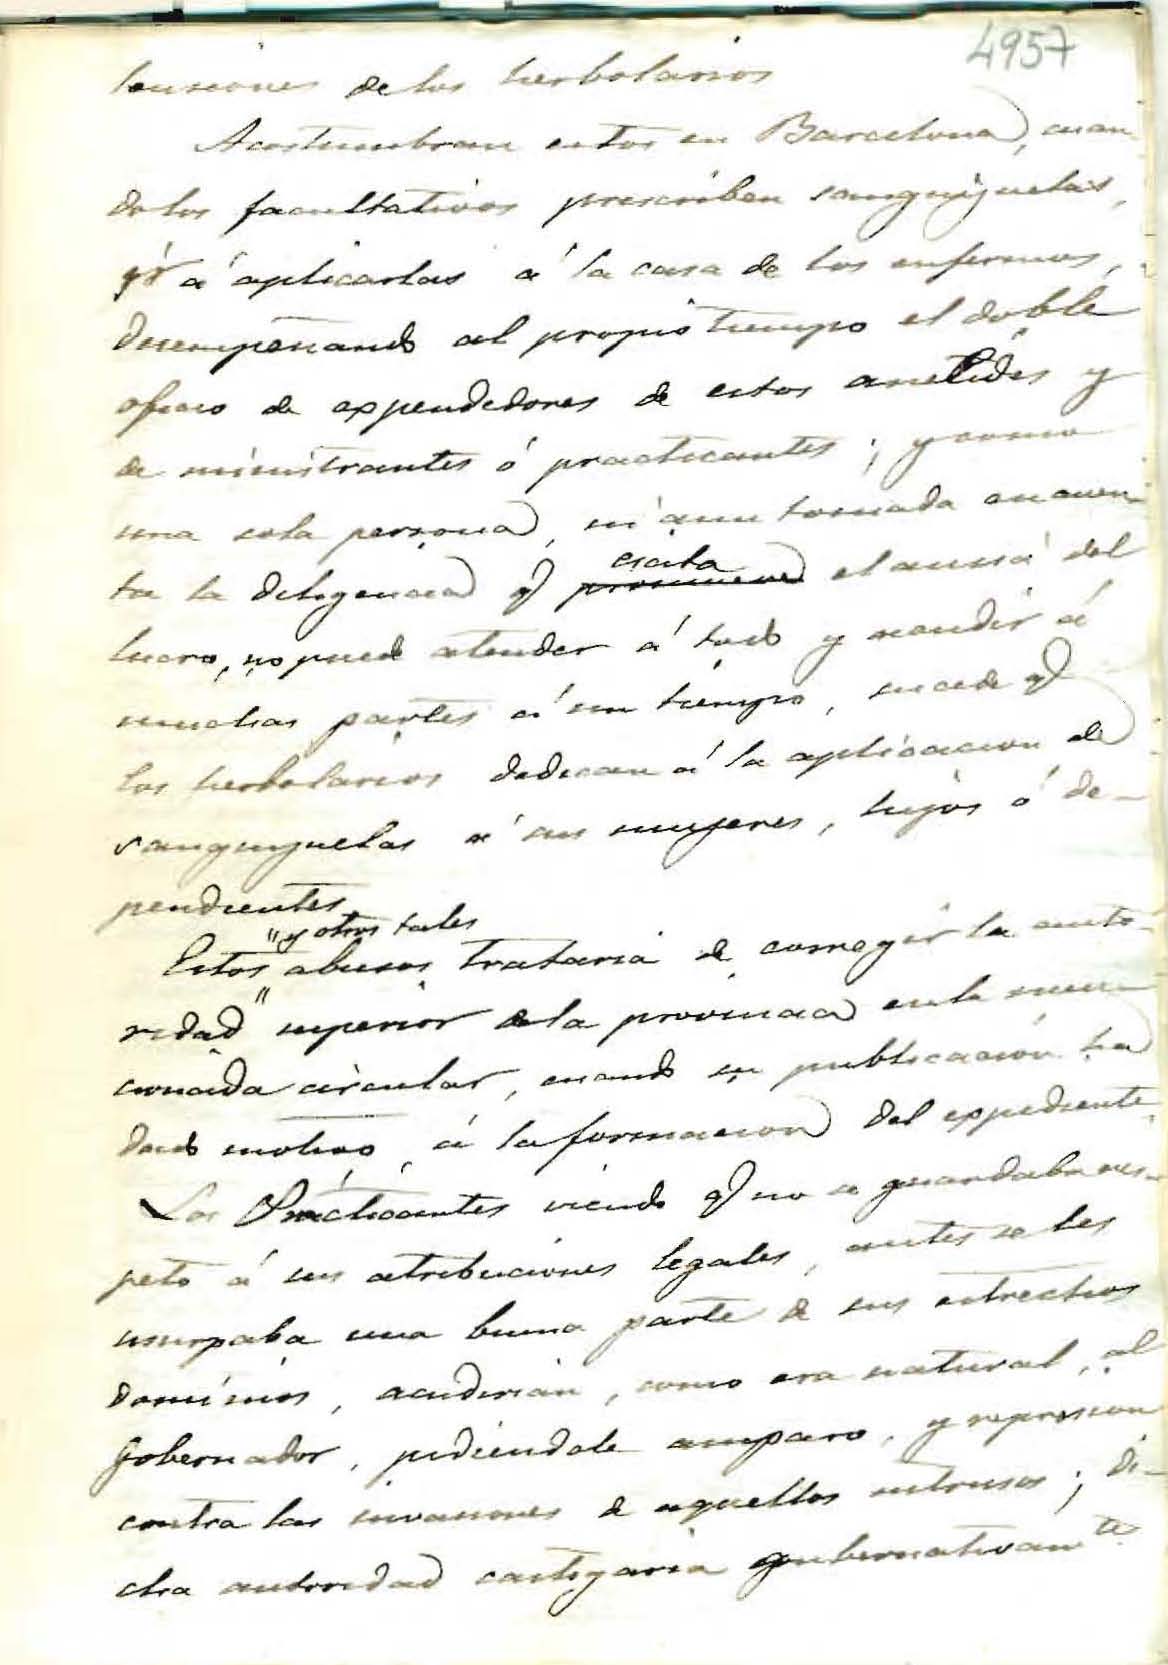 4957
tensiones de los herbolarios
Acostumbran estos en Barcelona, cuan
do los facultativos prescriben sanguijuelas,
ir á aplicarlas á la casa de los enfermos,
desempeñando al propio tiempo el doble
oficio de expendedores de estos anelides y
de ministrantes ó practicantes; y como
una sola persona, ni aun tomada en cuen
ta la diligencia q escita
promueve el ansia del
lucro, no puede atender á todo y acudir á
muchas partes á un tiempo, sucede q
los herbolarios dedican á la aplicacion de
sanguijuelas á sus mujeres, hijos ó de-
pendientes
" y otros tales
Estos " abusos trataria de corregir la auto-
ridad superior de la provincia en la men
cionada circular, cuando su publicación ha
dado motivo, á la formacion del expediente.
Los Practicantes viendo q no se guardaba res-
peto á sus atribuciones legales, antes se les
usurpaba una buena parte de sus estrechos
dominios, acudirian, como era natural, al
Gobernador, pidiendole amparo, y represion
contra las invasiones de aquellos intrusos; di-
cha autoridad castigaria gubernativamte